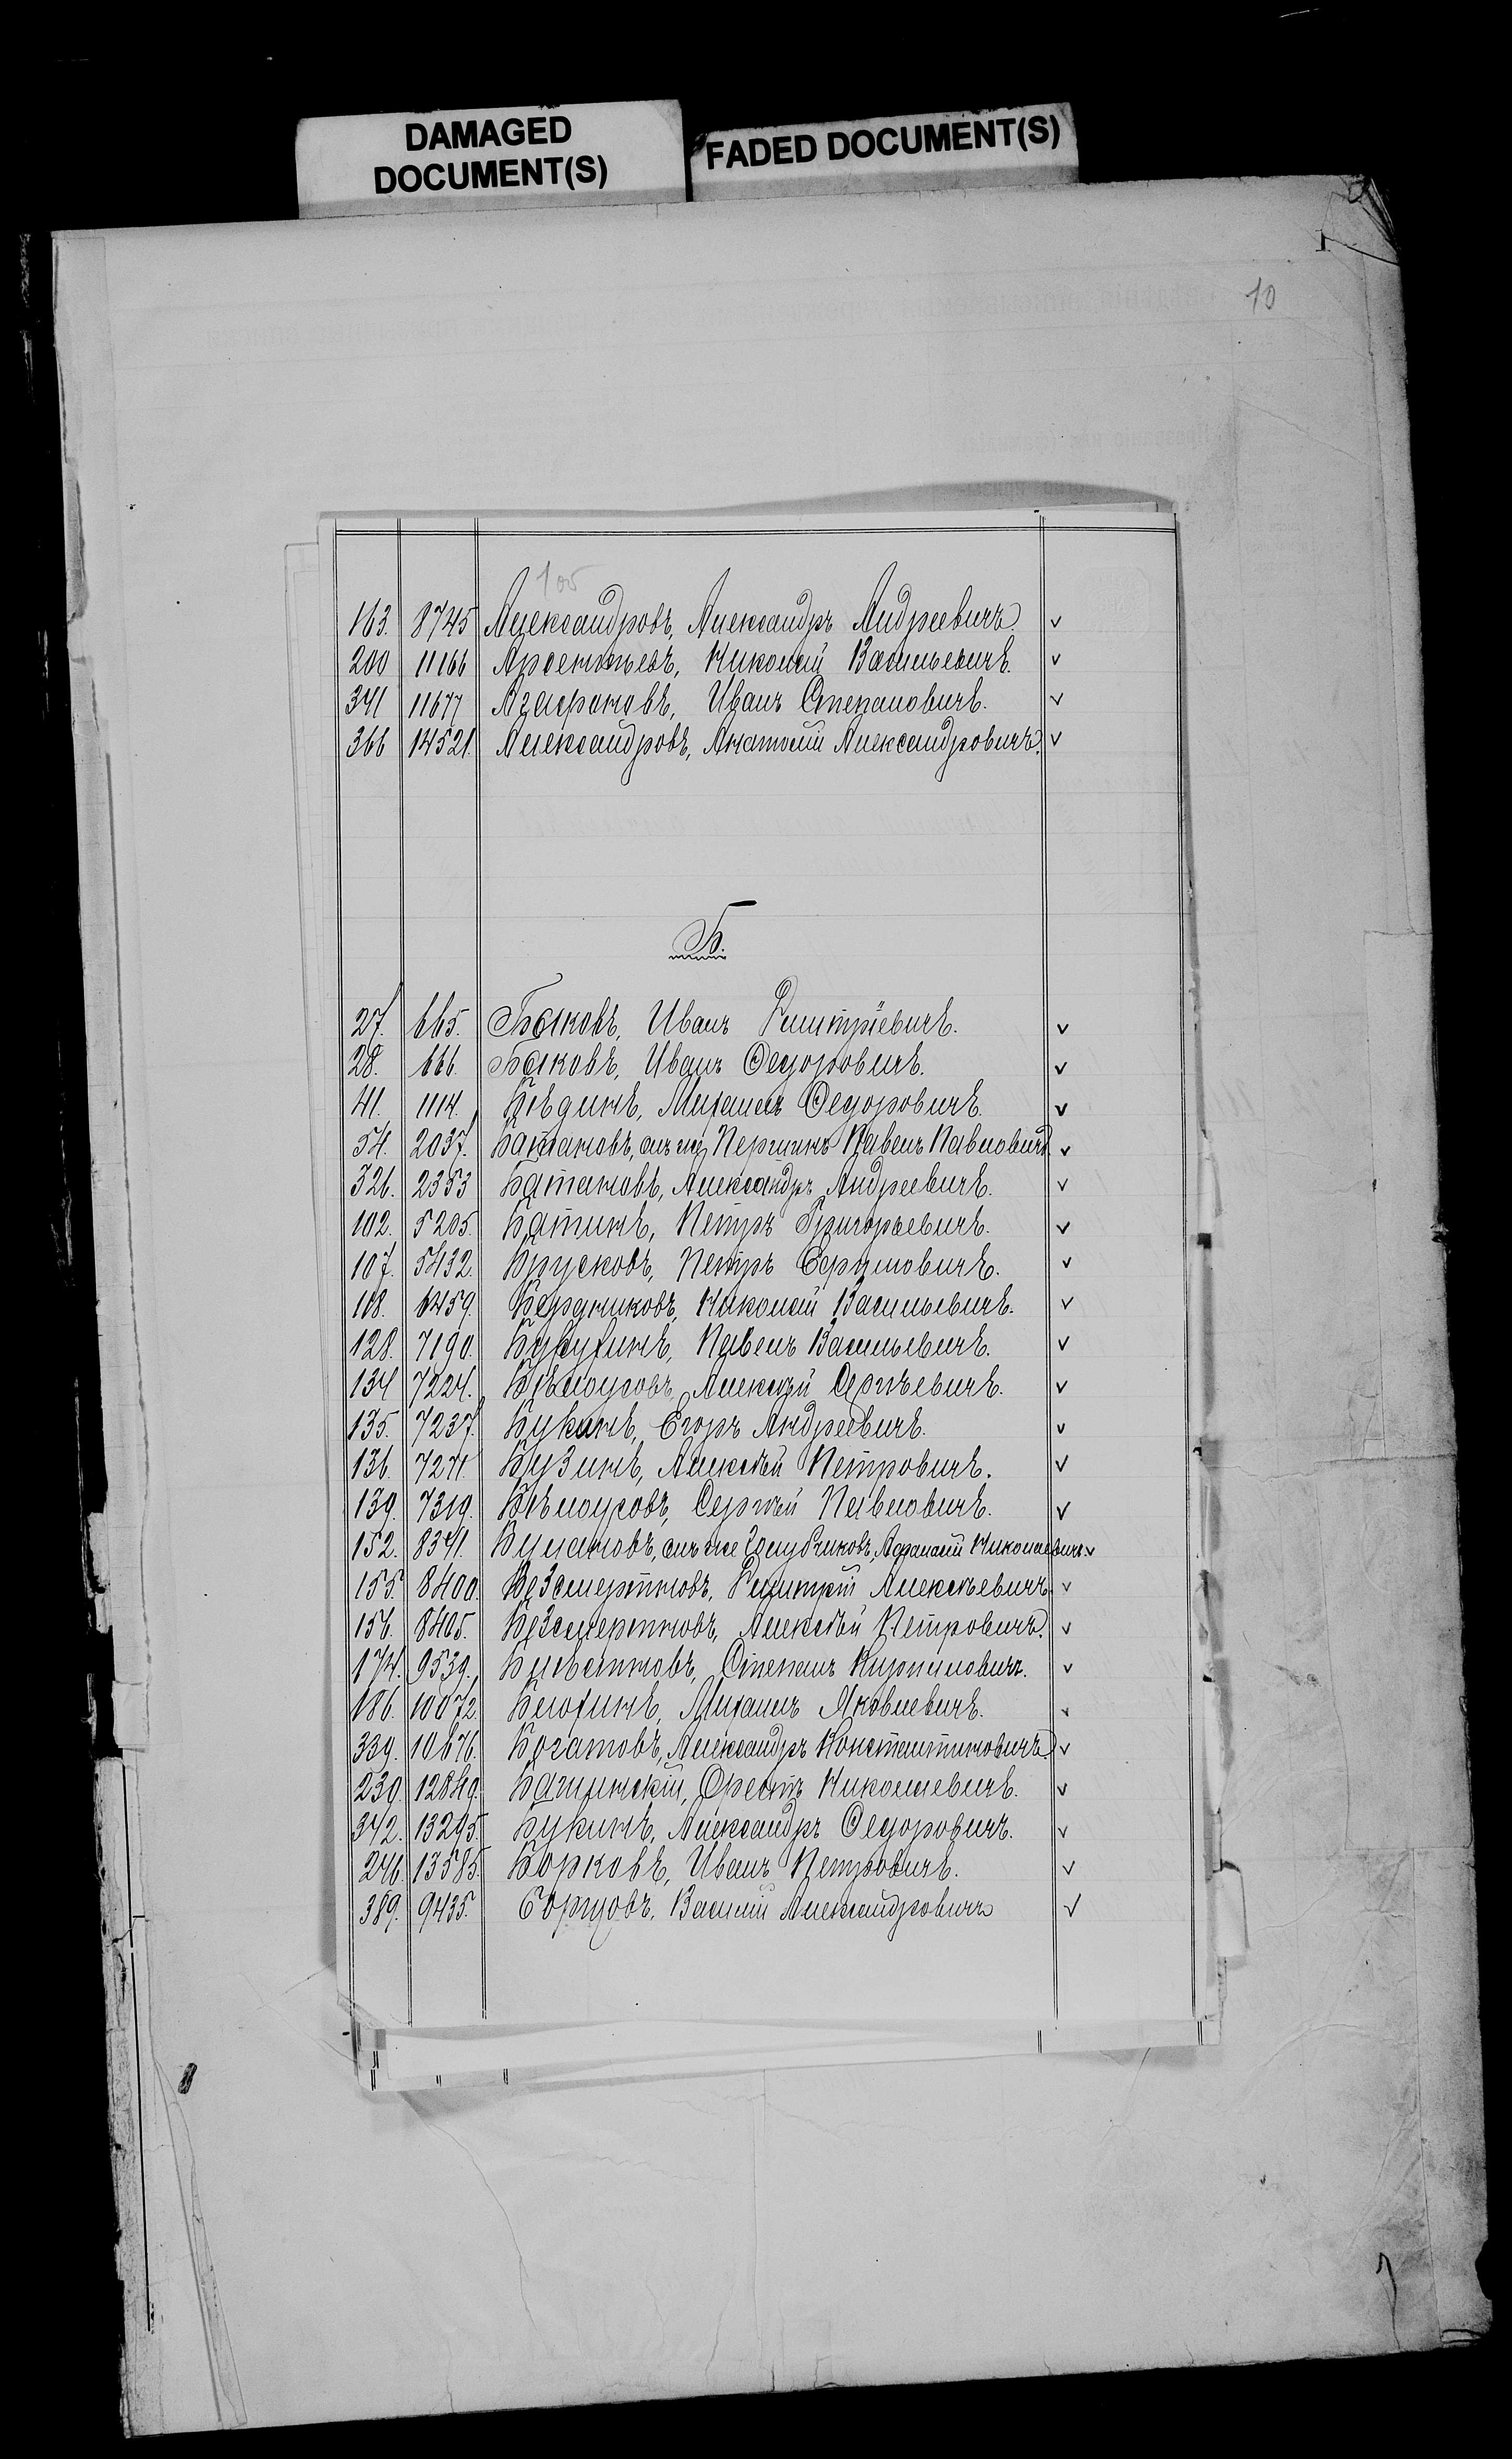 DAMAGED
DOCUMENT(S)
FADED DOCUMENT(S)
10
163. 8745 Александровъ, Александръ Андреевичъ. v
200 11166 Арсентьевъ, Николай Васильевичъ. v
341 11677 Аграфоновъ, Иванъ Степановичъ. v
366 14521 Александровъ, Анатолій Александровичъ. v
Б.
27. 665. Быковъ, Иванъ Дмитріевичъ. v
28. 666. Быковъ, Иванъ Федоровичъ. v
41. 1114. Бѣдинъ, Михаилъ Федоровичъ. v
54. 2037. Батановъ, онъ же Першинъ Павелъ Павловичъ. v
326. 2353 Батановъ, Александръ Андреевичъ. v
102. 5205. Батинъ, Петръ Григорьевичъ. v
107. 5432. Брусковъ, Петръ Ефимовичъ. v
118. 6459. Бердниковъ, Николай Васильевичъ. v
128. 7190. Павелъ Васильевичъ. v
134 7224. Бѣлоусовъ, Алексѣй Сергѣевичъ. v
135. 7237. Букинъ, Егоръ Андреевичъ. v
136. 7271. Бузинъ, Алексѣй Петровичъ. v
139. 7319. Бѣлоусовъ, Сергѣй Павловичъ. v
152. 8341. Булановъ, онъ же Голубчиковъ, Афанасій Николаевичъ. v
155. 8400. Безсмертновъ, Дмитрій Алексѣевичъ. v
156. 8405. Безсмертновъ, Алексѣй Петровичъ. v
174. 9539. Степанъ Кирилловичъ. v
186. 10072. Блохинъ, Михаилъ Яковлевичъ. v
339. 10676. Богатовъ, Александръ Константиновичъ. v
230. 12849. Багинскій, Орестъ Николаевичъ. v
342. 13295. Букинъ, Александръ Федоровичъ. v
246. 13585. Борковъ, Иванъ Петровичъ. v
389. 9435. Борщовъ, Василій Александровичъ v